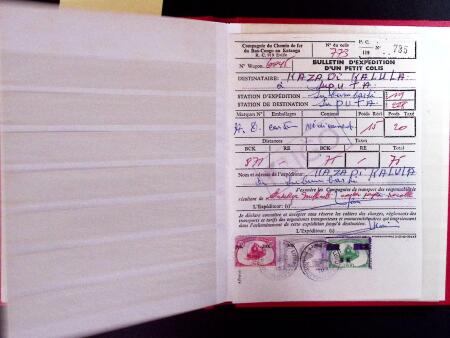 Compagnie du Chemin de fer
du Bas-Congo au Katanga
No du colis
773
P. C.
119
735
No Wagon
BULLETIN D'EXPÉDITION
D'UN PETIT COLIS
DESTINATAIRE: KAZADI KALULA
à Luputa
STATION D'EXPÉDITION Lubumbashi
STATION DE DESTINATION Luputa
Marques No Emballages Contenu Poids Réel Poids Taxé
carton Médicament 15 20
Distances Taxes
BCK RE BCK RE
871 - 75 - 75
Nom et adresse de l'expéditeur: KAZADI KALULA
Lubumbashi
J'exonère les Compagnies de transport des responsabilités
résultant de
L'Expéditeur: (s)
Je déclare connaître et accepter sous réserve les cahiers des charges, règlements
des transports et tarifs des organismes transporteurs et manutentionnaires qui interviennent
dans l'acheminement de cette expédition jusqu'à destination.
L'Expéditeur: (s)